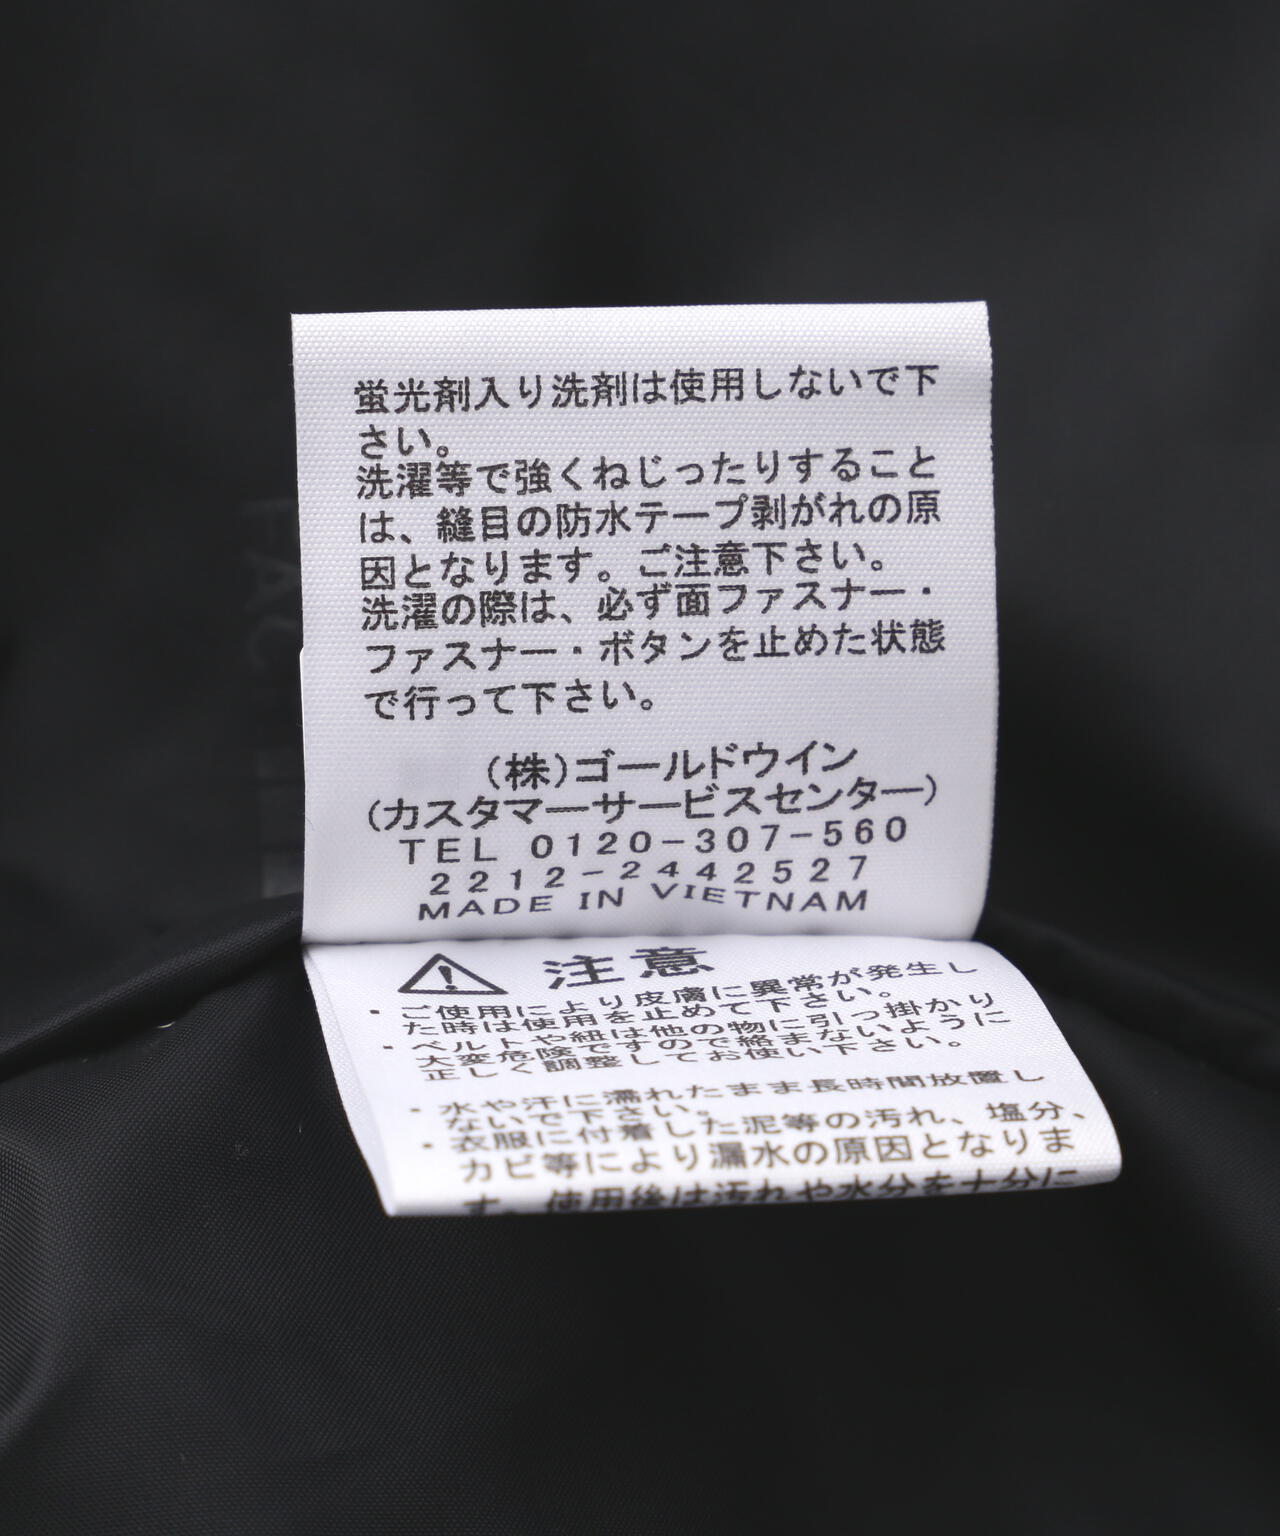 蛍光剤入り洗剤は使用しないで下
さい。
洗濯等で強くねじったりすること
は、縫目の防水テープ剥がれの原
因となります。ご注意下さい。
洗濯の際は、必ず面ファスナー・
ファスナー・ボタンを止めた状態
で行って下さい。
(株)ゴールドウイン
(カスタマーサービスセンター)
TEL 0120-307-560
2212-2442527
MADE IN VIETNAM
注意
・ご使用により皮膚に異常が発生し
た時は使用を止めて下さい。
・ベルトや紐は他の物に引っ掛かり
大変危険ですので絡まないように
正しく調整してお使い下さい。
・水や汗に濡れたまま長時間放置し
ないで下さい。
・衣服に付着した泥等の汚れ、塩分、
カビ等により漏水の原因となりま
す。使用後は汚れや水分を十分に